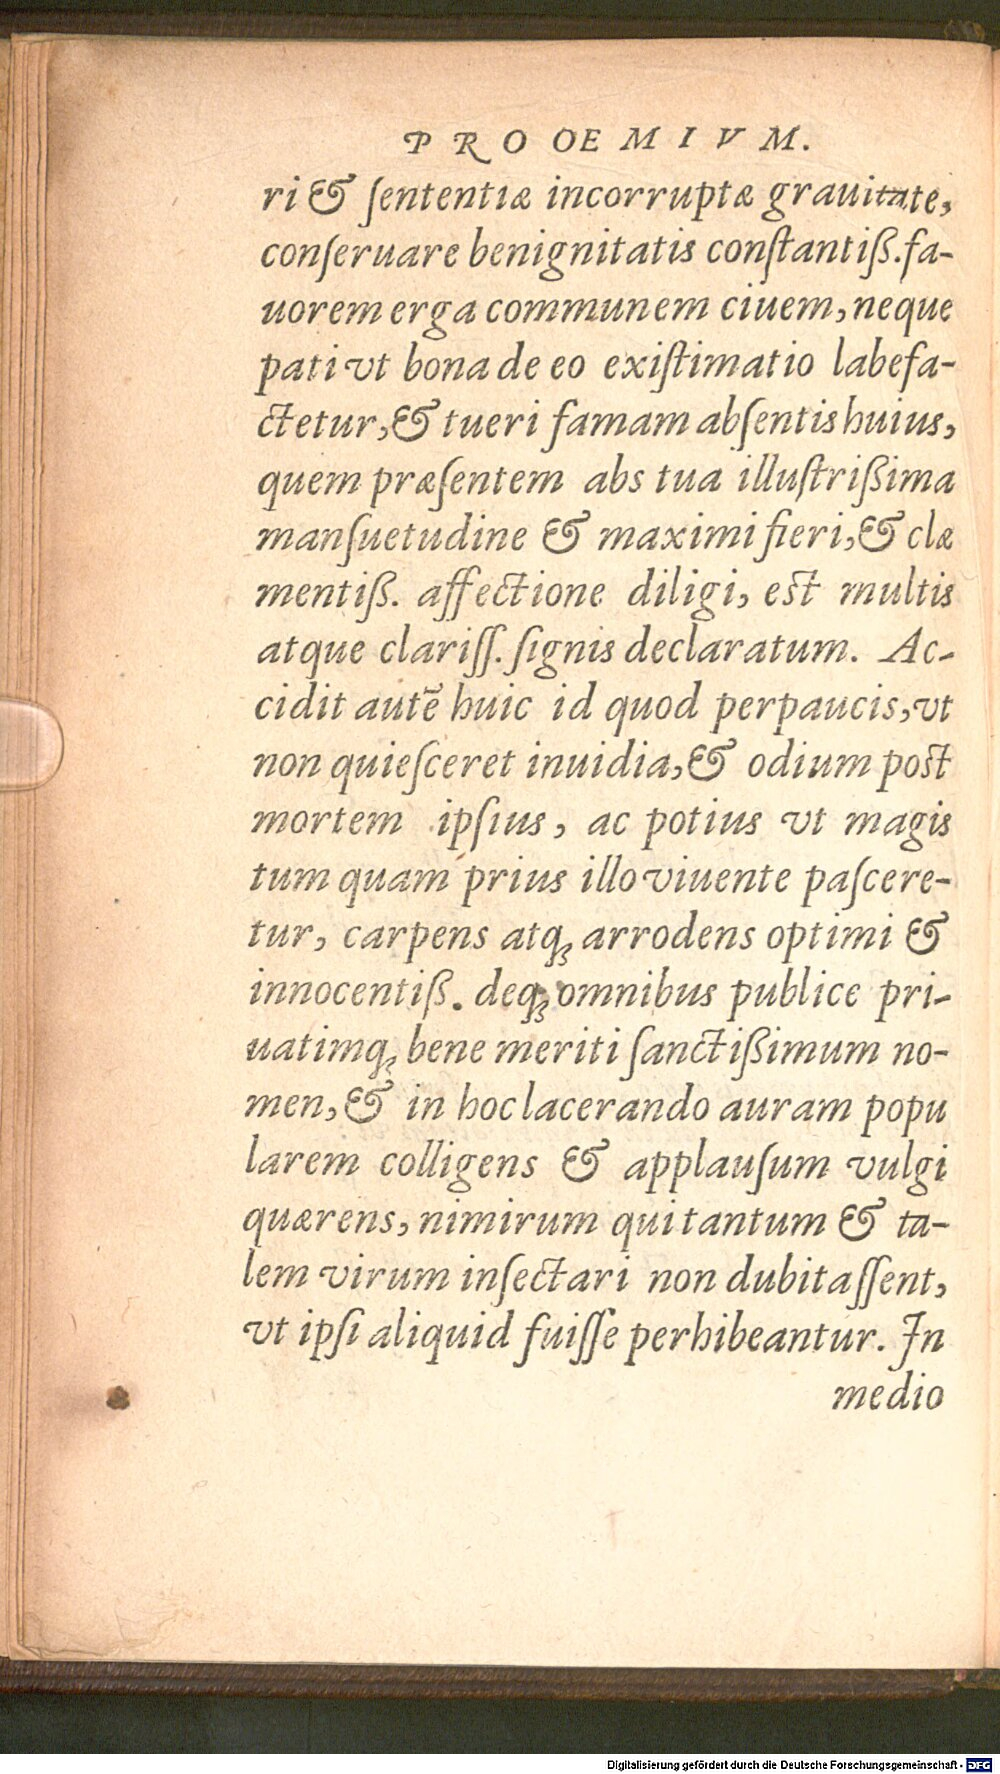 PROOEMIVM.
ri & ſententiæ incorruptæ grauitate,
conſeruare benignitatis conſtantiß. fa-
uorem erga communem ciuem, neque
pati vt bona de eo exiſtimatio labefa-
ctetur, & tueri famam abſentis huius,
quem præſentem abs tua illuſtrißima
manſuetudine & maximi fieri, & clæ
mentiß. affectione diligi, est multis
atque clariſſ. ſignis declaratum. Ac-
cidit autē huic id quod perpaucis, vt
non quieſceret inuidia, & odium post
mortem ipſius, ac potius vt magis
tum quam prius illo viuente paſcere-
tur, carpens atq; arrodens optimi &
innocentiß. deq; omnibus publice pri-
uatimq; bene meriti ſanctißimum no-
men, & in hoc lacerando auram popu
larem colligens & applauſum vulgi
quærens, nimirum qui tantum & ta-
lem virum inſectari non dubitaſſent,
vt ipſi aliquid fuiſſe perhibeantur. In
medio
Digitalisierung gefördert durch die Deutsche Forschungsgemeinschaft - DFG